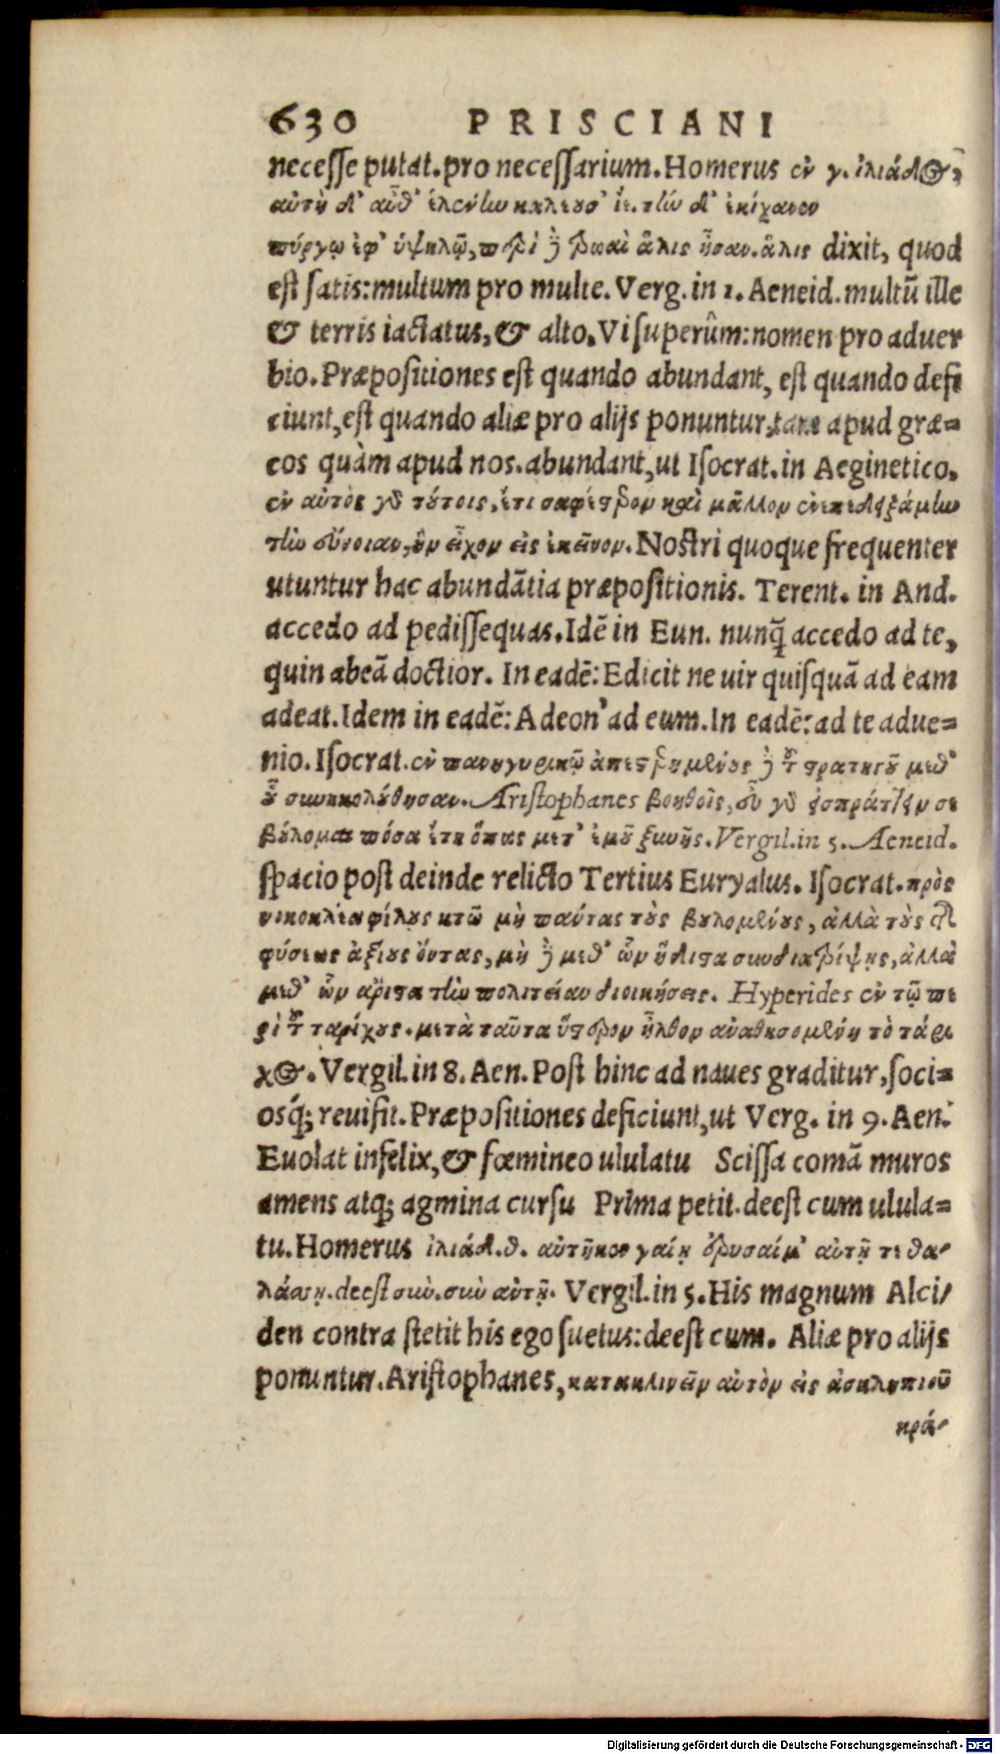 630 PRISCIANI
necesse putat. pro necessarium. Homerus ἐν γ. ἰλιάδος,
αὐτὴ δ' αὖθ' ἑλένην καλέουσ' ἴε. τὴν δ' ἐκίχανεν
πύργῳ ἐφ' ὑψηλῷ, περὶ δὲ τρωαὶ ἅλις ἦσαν. ἅλις dixit, quod
est satis: multum pro multe. Verg. in 1. Aeneid. multũ ille
& terris iactatus, & alto. Vi superûm: nomen pro aduer
bio. Præpositiones est quando abundant, est quando defi
ciunt, est quando aliæ pro alijs ponuntur, tam apud græ=
cos quàm apud nos. abundant, ut Isocrat. in Aeginetico.
ἐν αὐτοῖς γὰρ τούτοις, ἔτι σαφέστερον καὶ μᾶλλον ἐνεπεδειξάμην
τὴν εὔνοιαν, ἣν εἶχον εἰς ἐκεῖνον. Nostri quoque frequenter
utuntur hac abundãtia præpositionis. Terent. in And.
accedo ad pedissequas. Idẽ in Eun. nunq̃ accedo ad te,
quin abeã doctior. In eadẽ: Edicit ne uir quisquã ad eam
adeat. Idem in eadẽ: Adeon' ad eum. In eadẽ: ad te adue=
nio. Isocrat. ἐν πανηγυρικῷ ἀπεστερημένος δὲ τοῦ στρατηγοῦ μεθ'
οὗ συνηκολούθησαν. Aristophanes βοηθοῖς, οὗ γὰρ
βούλομαι πόσα ἔτη ὅπως μετ' ἐμοῦ ξυνῇς. Vergil. in 5. Aeneid.
spacio post deinde relicto Tertius Euryalus. Isocrat. πρὸς
νικοκλέα φίλους κτῶ μὴ πάντας τοὺς βουλομένους, ἀλλὰ τοὺς τῆς
φύσεως ἀξίους ὄντας, μὴ δὲ μεθ' ὧν ἥδιστα συνδιατρίψῃς, ἀλλὰ
μεθ' ὧν ἄριστα τὴν πολιτείαν διοικήσεις. Hyperides ἐν τῷ πε
ρὶ τοῦ ταρίχους. μετὰ ταῦτα ὕστερον ἦλθον ἀναθησομένη τὸ τάρι
χος. Vergil. in 8. Aen. Post hinc ad naues graditur, soci=
osq́; reuisit. Præpositiones deficiunt, ut Verg. in 9. Aen.
Euolat infelix, & fœmineo ululatu Scissa comã muros
amens atq; agmina cursu Prima petit. deest cum ulula=
tu. Homerus ἰλιάδ. θ. αὐτῇ κεν γαίῃ ἐρύσαιμ' αὐτῇ τε θα-
λάσσῃ. deest σύν. σὺν αὐτῇ. Vergil. in 5. His magnum Alci/
den contra stetit his ego suetus: deest cum. Aliæ pro alijs
ponuntur. Aristophanes, κατακλινεῖν αὐτὸν εἰς ἀσκληπιοῦ
κρά-
Digitalisierung gefördert durch die Deutsche Forschungsgemeinschaft - DFG